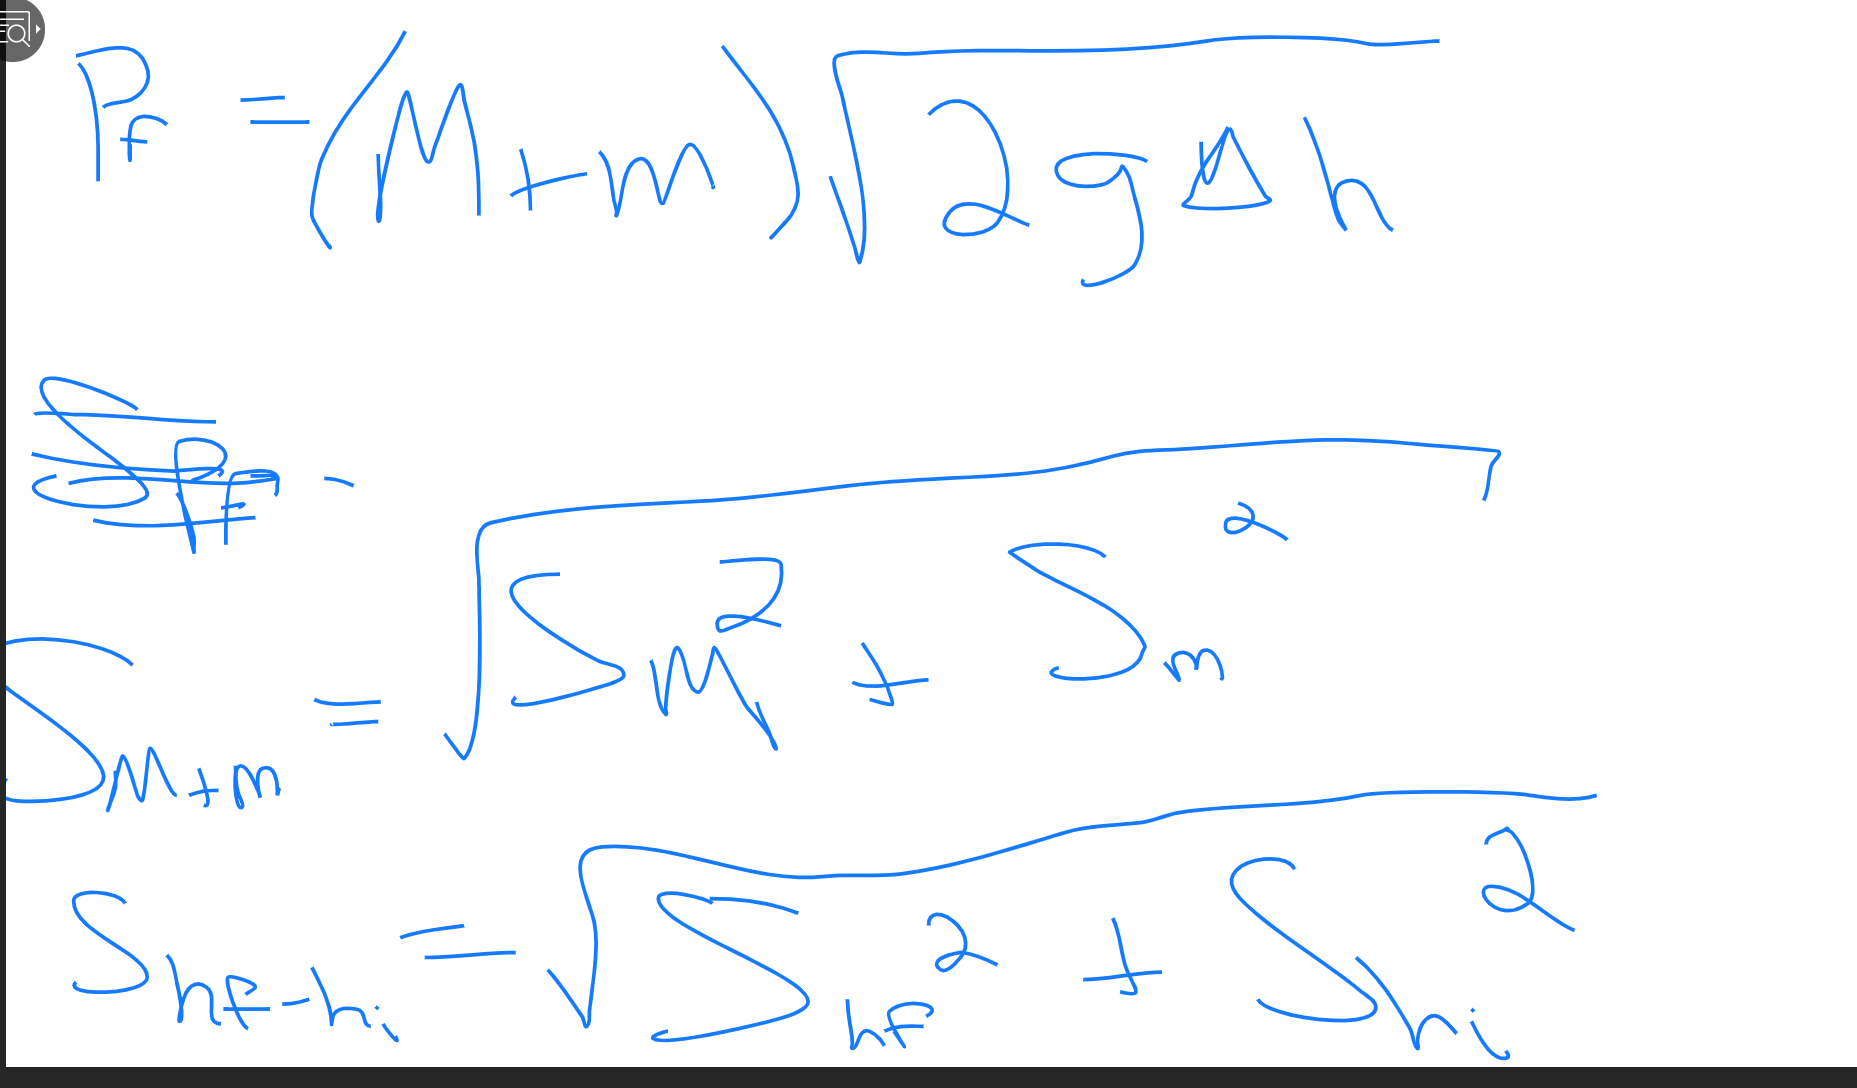 P_f = (M + m) √(2gΔh)
S_{M+m} = √(S_M² + S_m²)
S_{hf-hi} = √(S_{hf}² + S_{hi}²)